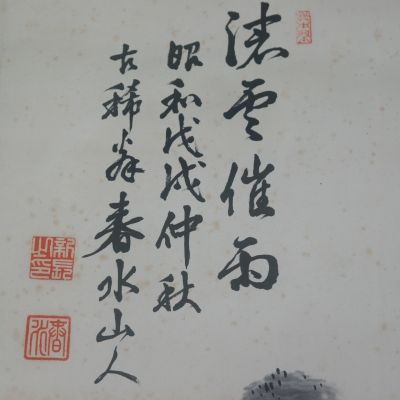 雲催雨
昭和戊戌仲秋
古稀翁春水山人
春水